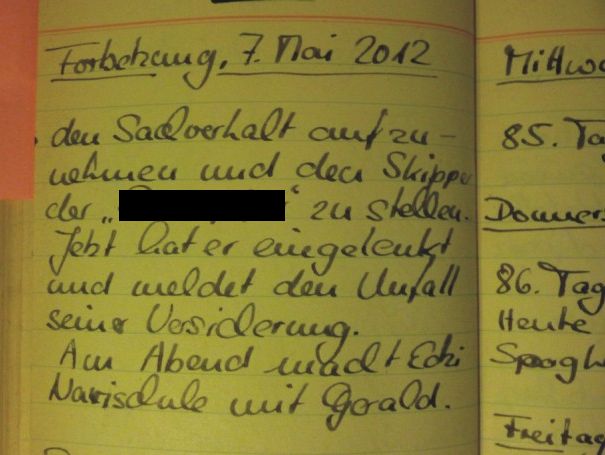 Fortsetzung, 7. Mai 2012
den Sachverhalt aufzu-
nehmen und den Skipper
der „ “ zu stellen.
Jetzt hat er eingelenkt
und meldet den Unfall
seiner Versicherung.
Am Abend macht Ecki
Navischule mit Gerald.
Mittwo
85. Ta
Donners
86. Tag
Heute
Spagh
Freitag